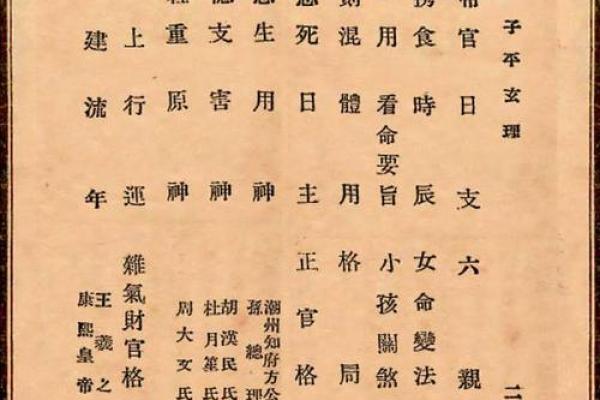 子平玄理
官日支六親
食時辰女命變法
用看命要旨小孩關煞
混體用格局
死日主正官格
生用神潮州知府方公
孫總理
支害神胡漢民氏
杜月笙氏
重原神周大文氏
上行運雜氣財官格
建流年王羲之
康熙皇帝